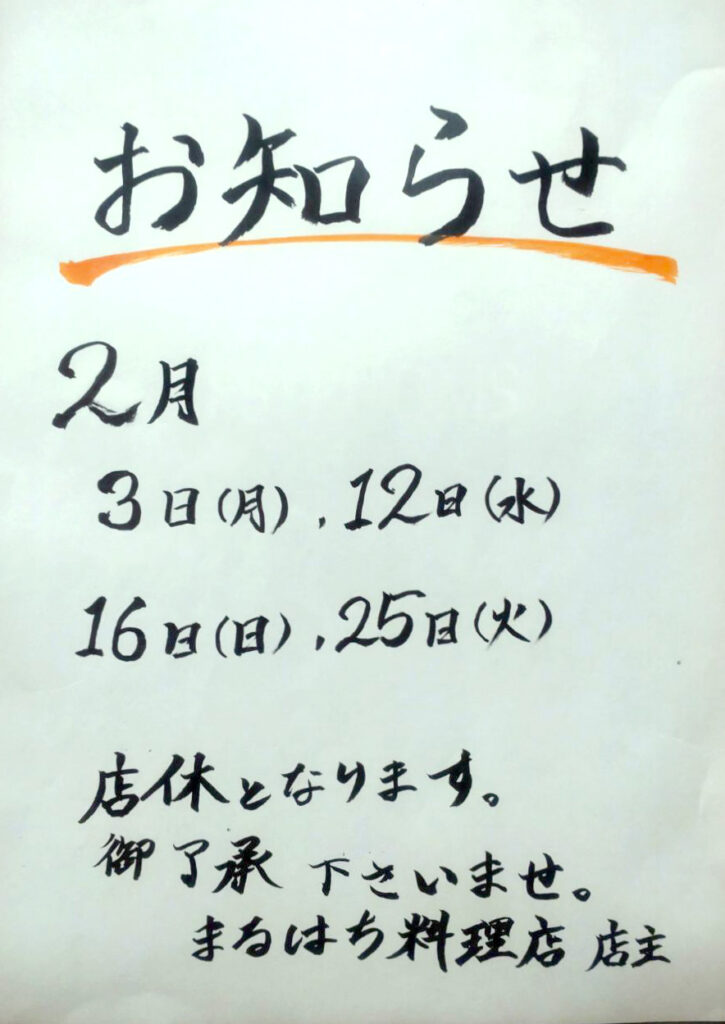 お知らせ
2月
3日(月)、12日(水)
16日(日)、25日(火)
店休となります。
御了承 下さいませ。
まるはち料理店 店主